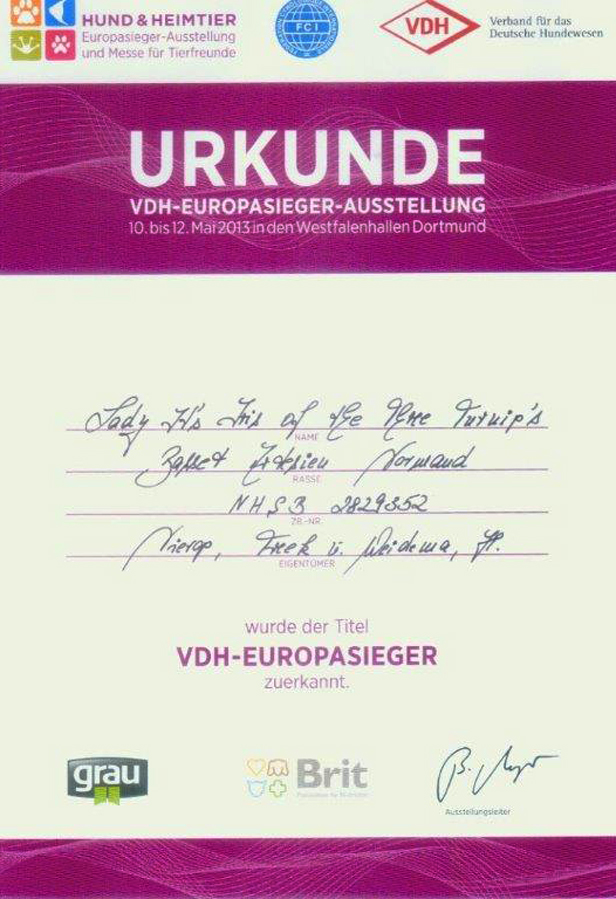 HUND & HEIMTIER
Europasieger-Ausstellung
und Messe für Tierfreunde
FCI
VDH
Verband für das
Deutsche Hundewesen
URKUNDE
VDH-EUROPASIEGER-AUSSTELLUNG
10. bis 12. Mai 2013 in den Westfalenhallen Dortmund
Lady of the Three Turnip's
NAME
Basset Artésien Normand
RASSE
NHSB 2829352
ZB.-NR.
Nierop, Freek u. Weidema, H.
EIGENTÜMER
wurde der Titel
VDH-EUROPASIEGER
zuerkannt.
grau
Brit
Ausstellungsleiter